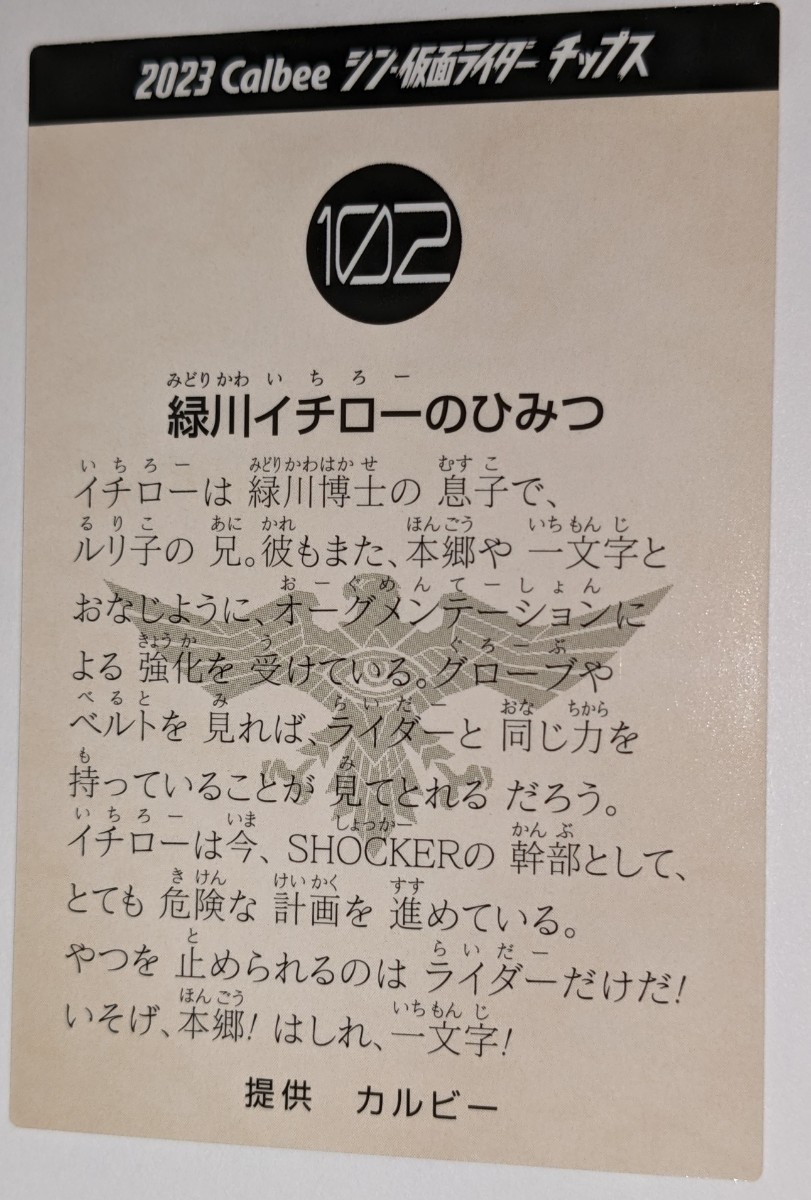 2023 Calbee シン・仮面ライダー チップス
102
みどりかわ いちろー
緑川イチローのひみつ
いちろー みどりかわはかせ むすこ
イチローは 緑川博士の 息子で、
るりこ あに かれ ほんごう いちもんじ
ルリ子の 兄。彼もまた、本郷や 一文字と
おーぐめんてーしょん
おなじように、オーグメンテーションに
きょうか う ぐろーぶ
よる 強化を 受けている。グローブや
べると み らいだー おな ちから
ベルトを 見れば、ライダーと 同じ力を
も み
持っていることが 見てとれる だろう。
いちろー いま しょっかー かんぶ
イチローは今、SHOCKERの 幹部として、
きけん けいかく すす
とても 危険な 計画を 進めている。
と らいだー
やつを 止められるのは ライダーだけだ!
ほんごう いちもんじ
いそげ、本郷! はしれ、一文字!
提供 カルビー